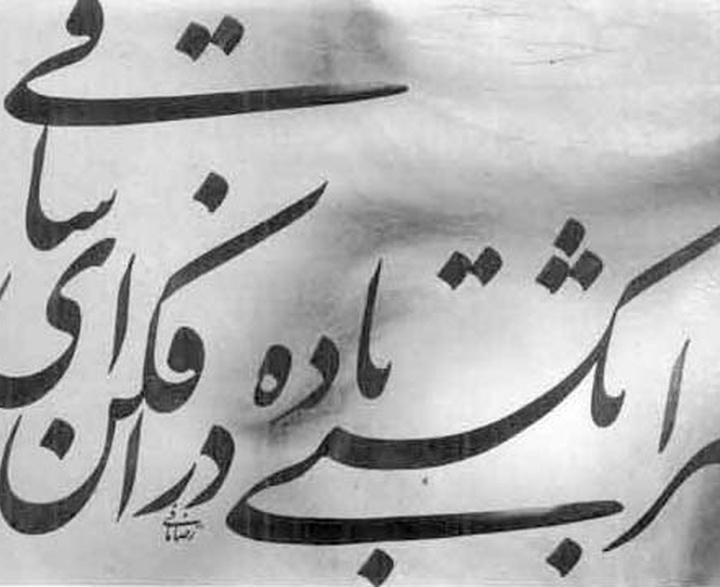 مرا بکشتی باده در افکن ای ساقی
رضا مافی